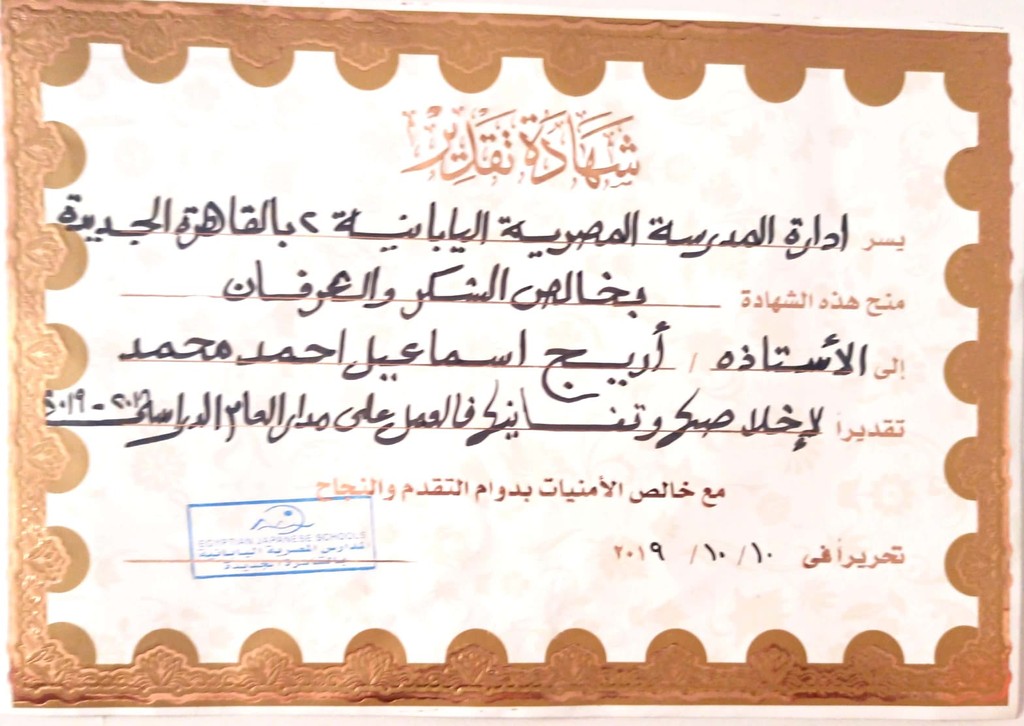 شَهَادَةُ تَقْدِيْر
يسر ادارة المدرسة المصرية اليابانية ٢ بالقاهرة الجديدة
منح هذه الشهادة بخالص الشكر والعرفان
إلى الأستاذه / أريج اسماعيل احمد محمد
تقديراً لإخلاصك وتفانيك فى العمل على مدار العام الدراسى ٢٠١٨-٢٠١٩
مع خالص الأمنيات بدوام التقدم والنجاح
تحريراً فى ١٠/ ١٠/ ٢٠١٩
EGYPTIAN JAPANESE SCHOOLS
المدارس المصرية اليابانية
بالقاهرة الجديدة